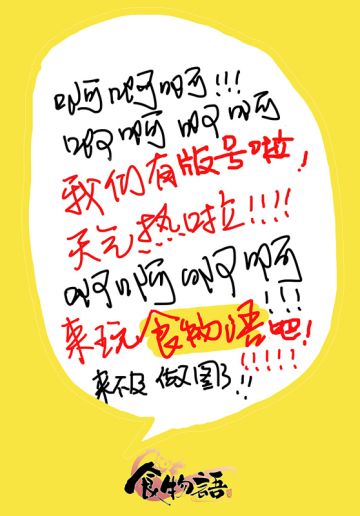 啊啊啊啊!!!
啊啊啊啊
我们有版号啦!
天气热啦!!!!
啊啊啊啊
!!!
来玩食物语吧!
!!!!!
来不及做图了!!
食物語